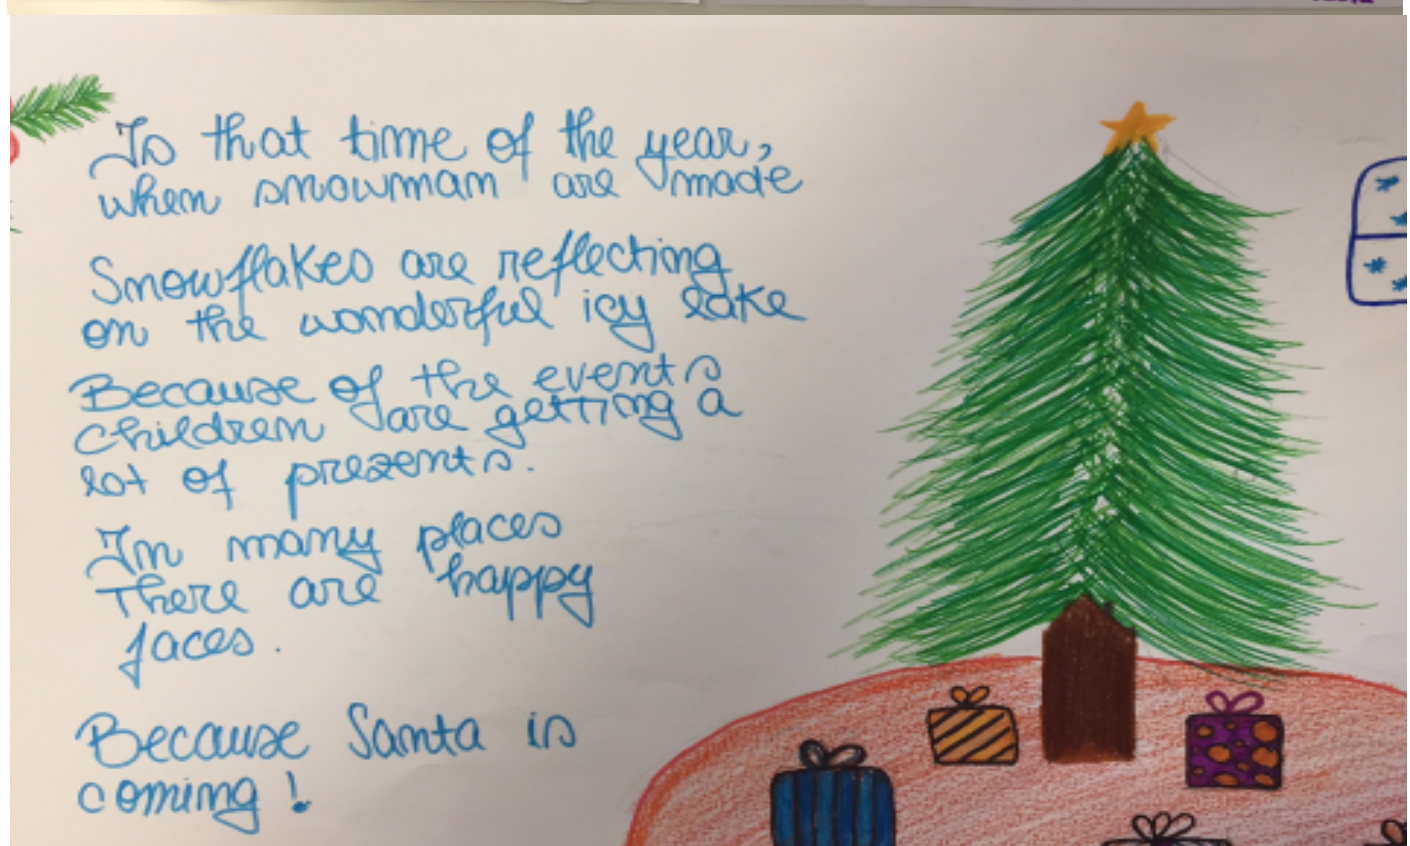 Is that time of the year,
when snowmam are made
Snowflakes are reflecting
on the wonderful icy lake
Because of the events
children are getting a
lot of presents.
In many places
There are happy
faces.
Because Santa is
coming!